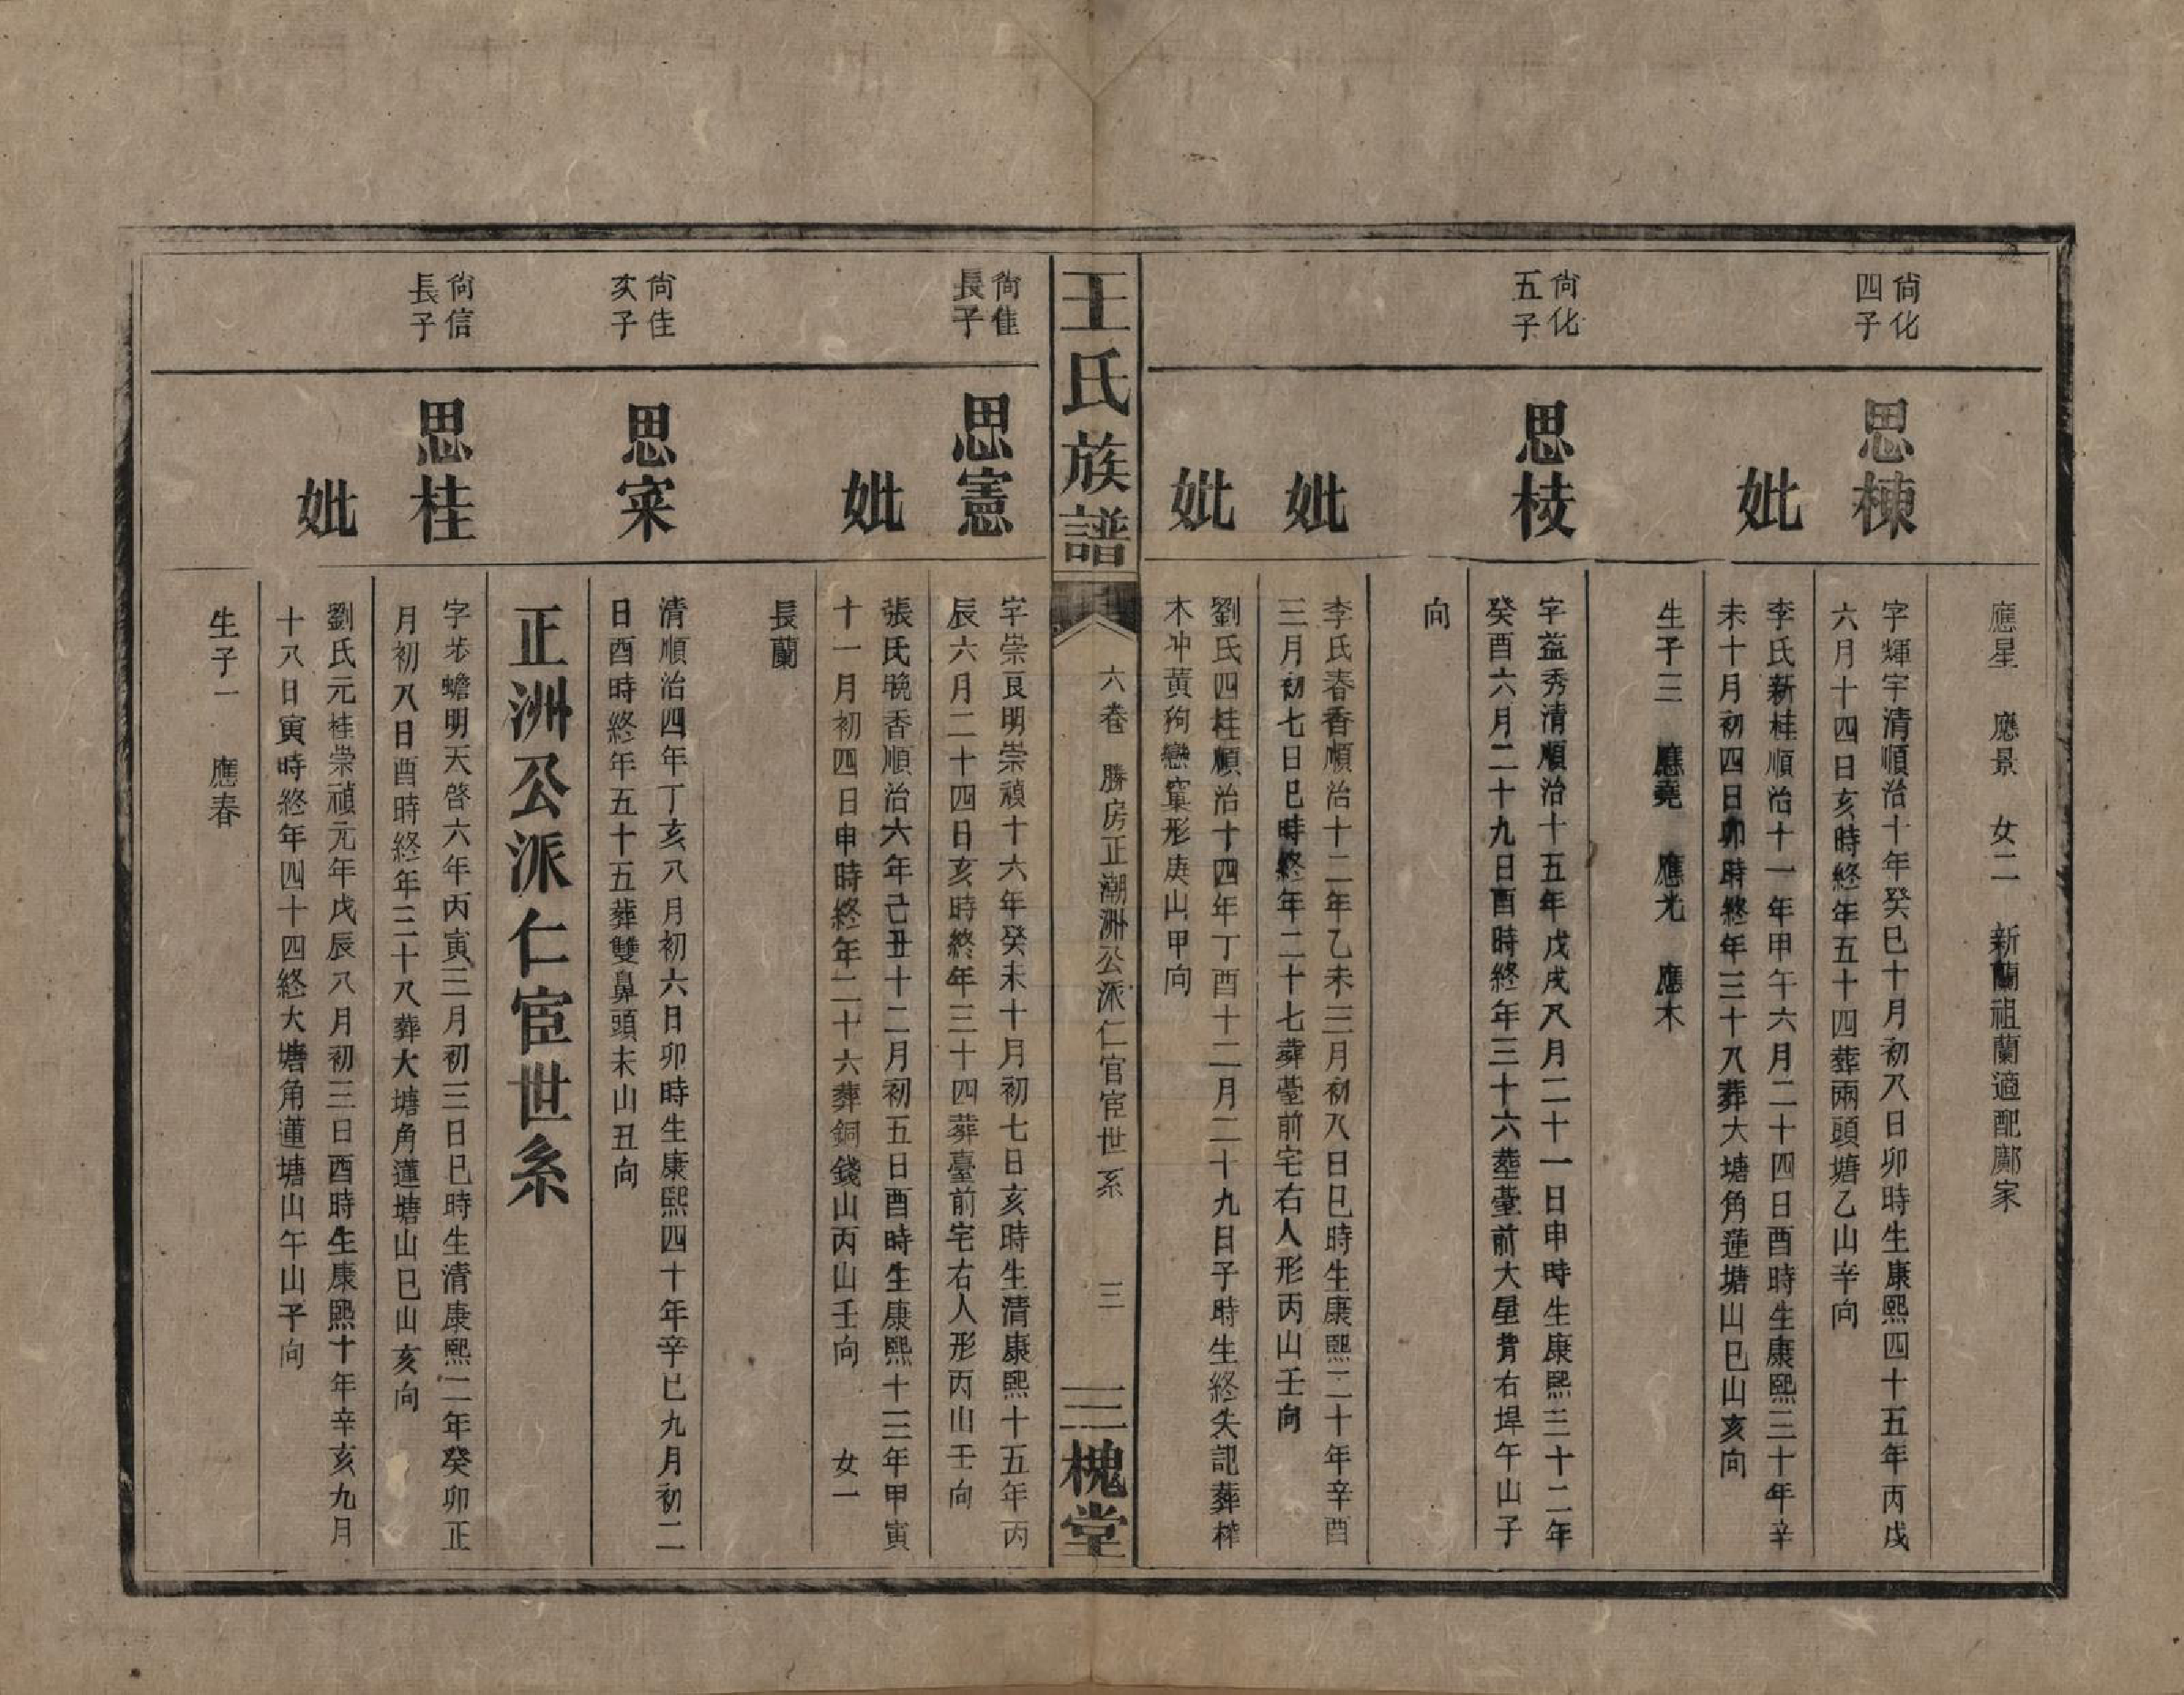 應星　應景　女二　新蘭祖蘭適配鄺家
尙化
四子
思棟
字輝宇清順治十年癸巳十月初八日卯時生康熙四十五年丙戌
六月十四日亥時終年五十四葬兩頭塘乙山辛向
妣
李氏新桂順治十一年甲午六月二十四日酉時生康熙三十年辛
未十月初四日卯時終年三十八葬大塘角蓮塘山巳山亥向
生子三　應堯　應光　應木
尙化
五子
思棱
字益秀清順治十五年戊戌八月二十一日申時生康熙三十二年
癸酉六月二十九日酉時終年三十六葬臺前大星背右埕午山子
向
妣
李氏春香順治十二年乙未三月初八日巳時生康熙二十年辛酉
三月初七日巳時終年二十七葬臺前宅右人形丙山壬向
妣
劉氏四桂順治十四年丁酉十二月二十九日子時生終失記葬榨
木冲黃狗戀窠形庚山甲向
王氏族譜
六卷　勝房正潮洲公派仁官宦世系　三
三槐堂
尙佳
長子
思憲
字崇良明崇禎十六年癸未十月初七日亥時生清康熙十五年丙
辰六月二十四日亥時終年三十四葬臺前宅右人形丙山壬向
妣
張氏晚香順治六年己丑十二月初五日酉時生康熙十三年甲寅
十一月初四日申時終年二十六葬銅錢山丙山壬向　女一
長蘭
尙佳
次子
思寀
清順治四年丁亥八月初六日卯時生康熙四十年辛巳九月初二
日酉時終年五十五葬雙鼻頭未山丑向
正洲公派仁宦世系
尙信
長子
思桂
字步蟾明天啓六年丙寅三月初三日巳時生清康熙二年癸卯正
月初八日酉時終年三十八葬大塘角蓮塘山巳山亥向
妣
劉氏元桂崇禎元年戊辰八月初三日酉時生康熙十年辛亥九月
十八日寅時終年四十四終大塘角蓮塘山午山子向
生子一　應春